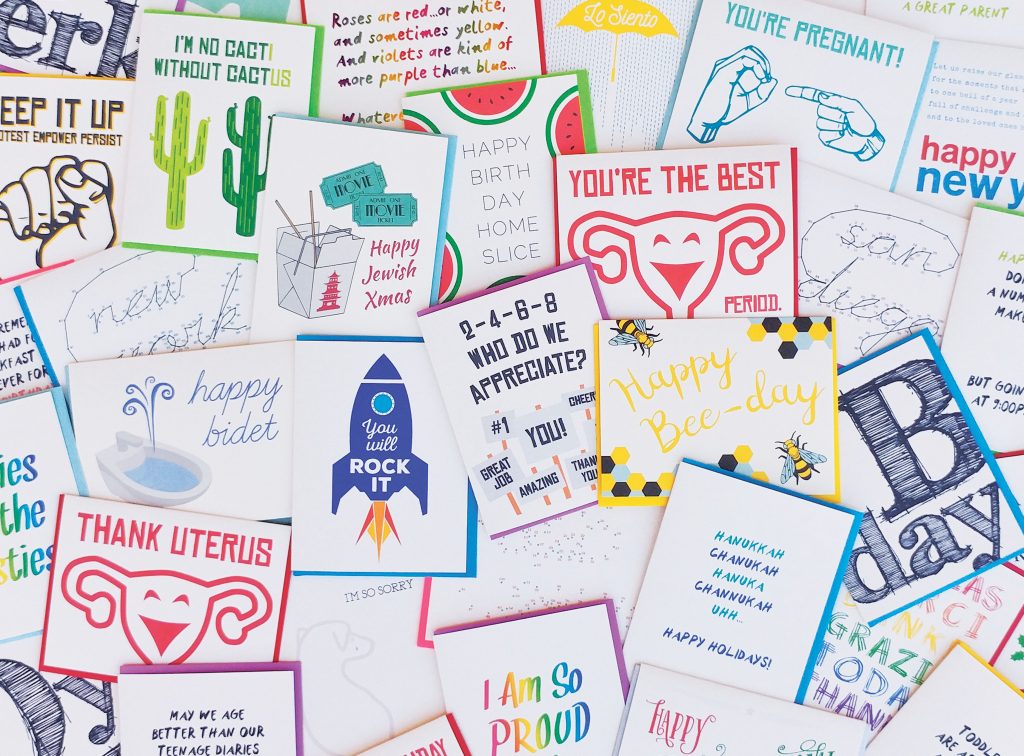 erk
I'M NO CACTI
WITHOUT CACTUS
Roses are red...or white,
and sometimes yellow.
And violets are kind of
more purple than blue...
Lo Siento
YOU'RE PREGNANT!
A GREAT PARENT
Let us raise our
for the moments that
to one hell of a year
full of challenge and
and to the loved ones
happy
new y
EEP IT UP
OTEST EMPOWER PERSIST
ADMIT ONE
MOVIE
TICKET
ADMIT ONE
MOVIE
TICKET
Happy
Jewish
Xmas
HAPPY
BIRTH
DAY
HOME
SLICE
YOU'RE THE BEST
PERIOD.
san
diego
new
york
HAD
BUT GOING
happy
bidet
You
will
ROCK
IT
2-4-6-8
WHO DO WE
APPRECIATE?
CHEER
#1
YOU!
GREAT
JOB
AMAZING
THANK
YOU
Happy
Bee-day
B
day
ies
the
sties
THANK UTERUS
I'M SO SORRY
HANUKKAH
CHANUKAH
HANUKA
CHANNUKAH
UHH...
HAPPY HOLIDAYS!
GRAZI
TODA
THANK
MAY WE AGE
BETTER THAN OUR
TEENAGE DIARIES
I Am So
PROUD
Happy
TODDLE